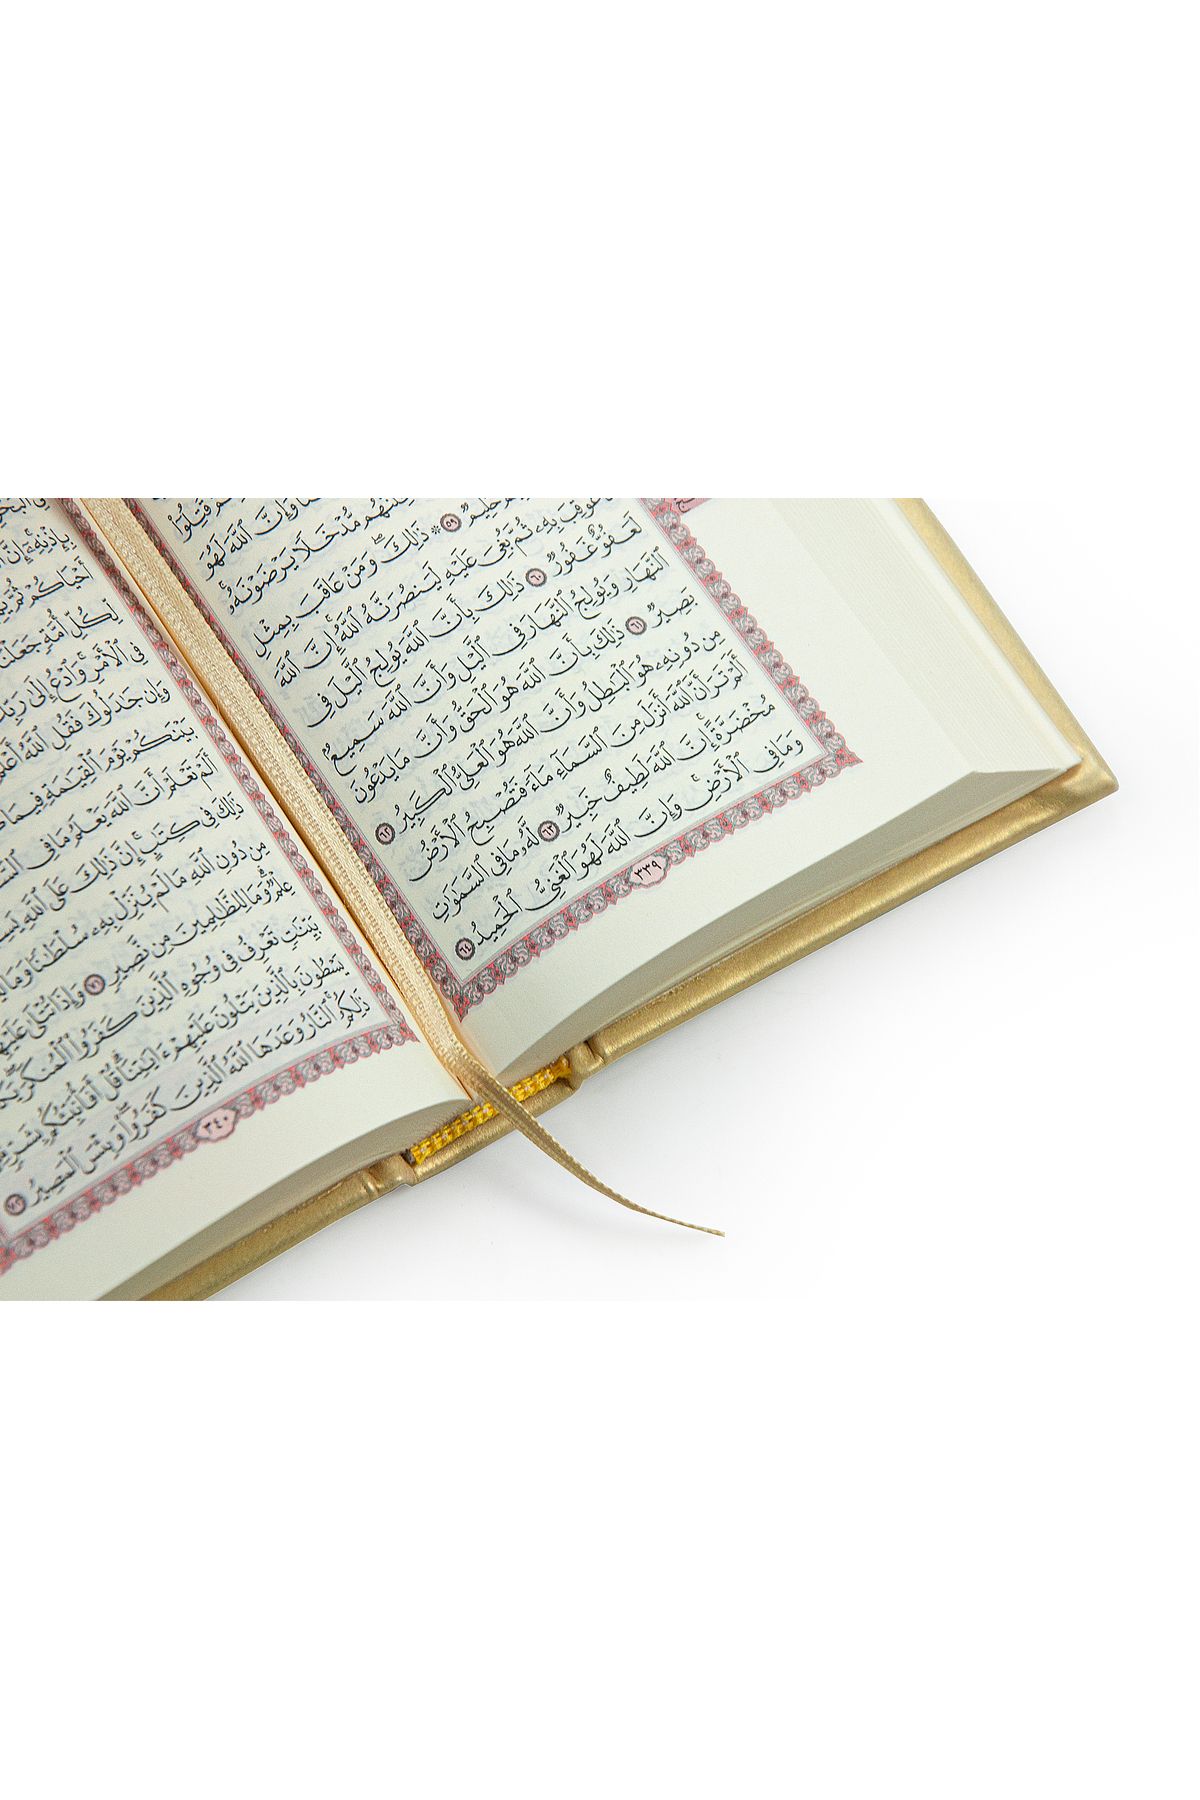 قُتِلُوٓا۟
وَإِنَّ ٱللَّهَ لَهُوَ
مُّدْخَلًا يَرْضَوْنَهُۥ
حَلِيمٌ ٥٩ ۞ ذَٰلِكَ وَمَنْ عَاقَبَ بِمِثْلِ
عُوقِبَ بِهِۦ ثُمَّ بُغِىَ عَلَيْهِ لَيَنصُرَنَّهُ ٱللَّهُ ۗ إِنَّ ٱللَّهَ
لَعَفُوٌّ غَفُورٌ ٦٠ ذَٰلِكَ بِأَنَّ ٱللَّهَ يُولِجُ ٱلَّيْلَ فِى
ٱلنَّهَارِ وَيُولِجُ ٱلنَّهَارَ فِى ٱلَّيْلِ وَأَنَّ ٱللَّهَ سَمِيعٌۢ
بَصِيرٌ ٦١ ذَٰلِكَ بِأَنَّ ٱللَّهَ هُوَ ٱلْحَقُّ وَأَنَّ مَا يَدْعُونَ
مِن دُونِهِۦ هُوَ ٱلْبَٰطِلُ وَأَنَّ ٱللَّهَ هُوَ ٱلْعَلِىُّ ٱلْكَبِيرُ ٦٢
أَلَمْ تَرَ أَنَّ ٱللَّهَ أَنزَلَ مِنَ ٱلسَّمَآءِ مَآءً فَتُصْبِحُ ٱلْأَرْضُ
مُخْضَرَّةً ۗ إِنَّ ٱللَّهَ لَطِيفٌ خَبِيرٌ ٦٣ لَّهُۥ مَا فِى ٱلسَّمَٰوَٰتِ
وَمَا فِى ٱلْأَرْضِ ۗ وَإِنَّ ٱللَّهَ لَهُوَ ٱلْغَنِىُّ ٱلْحَمِيدُ ٦٤
٣٣٩
فِى ٱلْبَحْرِ
بِإِذْنِهِۦٓ ۗ إِنَّ
أَحْيَاكُمْ ثُمَّ
لِّكُلِّ أُمَّةٍ جَعَلْنَا
فِى ٱلْأَمْرِ ۚ وَٱدْعُ إِلَىٰ رَبِّكَ
وَإِن جَٰدَلُوكَ فَقُلِ ٱللَّهُ أَعْلَمُ
بَيْنَكُمْ يَوْمَ ٱلْقِيَٰمَةِ فِيمَا
أَلَمْ تَعْلَمْ أَنَّ ٱللَّهَ يَعْلَمُ مَا فِى
ذَٰلِكَ فِى كِتَٰبٍ ۚ إِنَّ ذَٰلِكَ عَلَى ٱللَّهِ
مِن دُونِ ٱللَّهِ مَا لَمْ يُنَزِّلْ بِهِۦ سُلْطَٰنًا وَمَا
عِلْمٌ ۗ وَمَا لِلظَّٰلِمِينَ مِن نَّصِيرٍ ٧١ وَإِذَا تُتْلَىٰ عَلَيْهِمْ
بَيِّنَٰتٍ تَعْرِفُ فِى وُجُوهِ ٱلَّذِينَ كَفَرُوا۟ ٱلْمُنكَرَ ۖ
يَسْطُونَ بِٱلَّذِينَ يَتْلُونَ عَلَيْهِمْ ءَايَٰتِنَا ۗ قُلْ أَفَأُنَبِّئُكُم بِشَرٍّ
ذَٰلِكُمُ ۗ ٱلنَّارُ وَعَدَهَا ٱللَّهُ ٱلَّذِينَ كَفَرُوا۟ ۖ وَبِئْسَ ٱلْمَصِيرُ ٧٢
٣٤٠